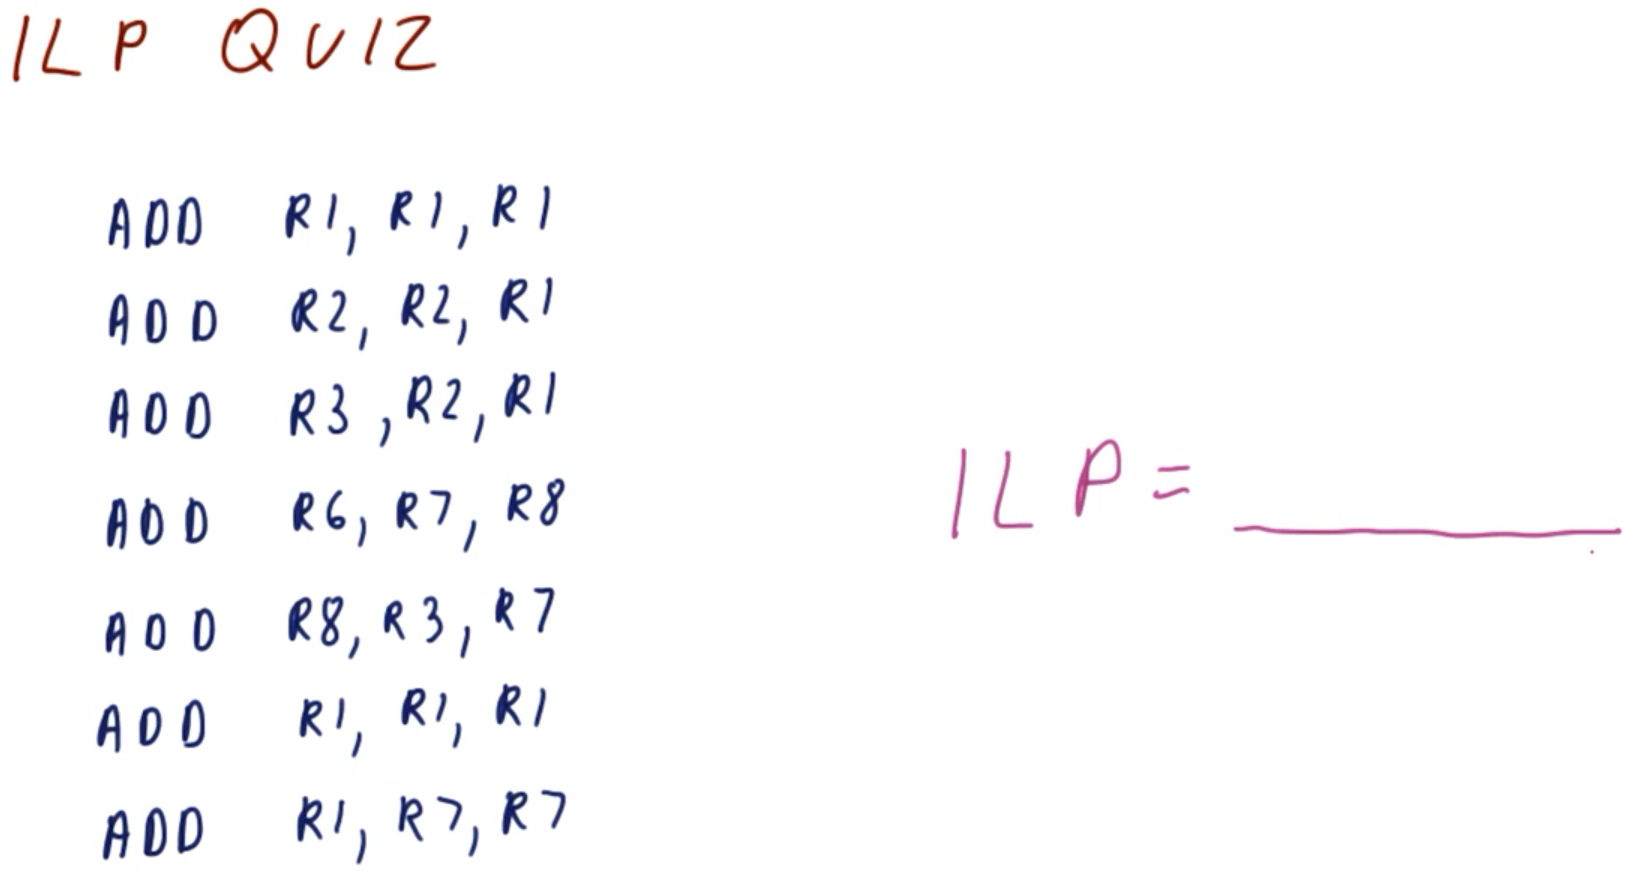 ILP QUIZ
ADD R1, R1, R1
ADD R2, R2, R1
ADD R3, R2, R1
ILP = ______
ADD R6, R7, R8
ADD R8, R3, R7
ADD R1, R1, R1
ADD R1, R7, R7